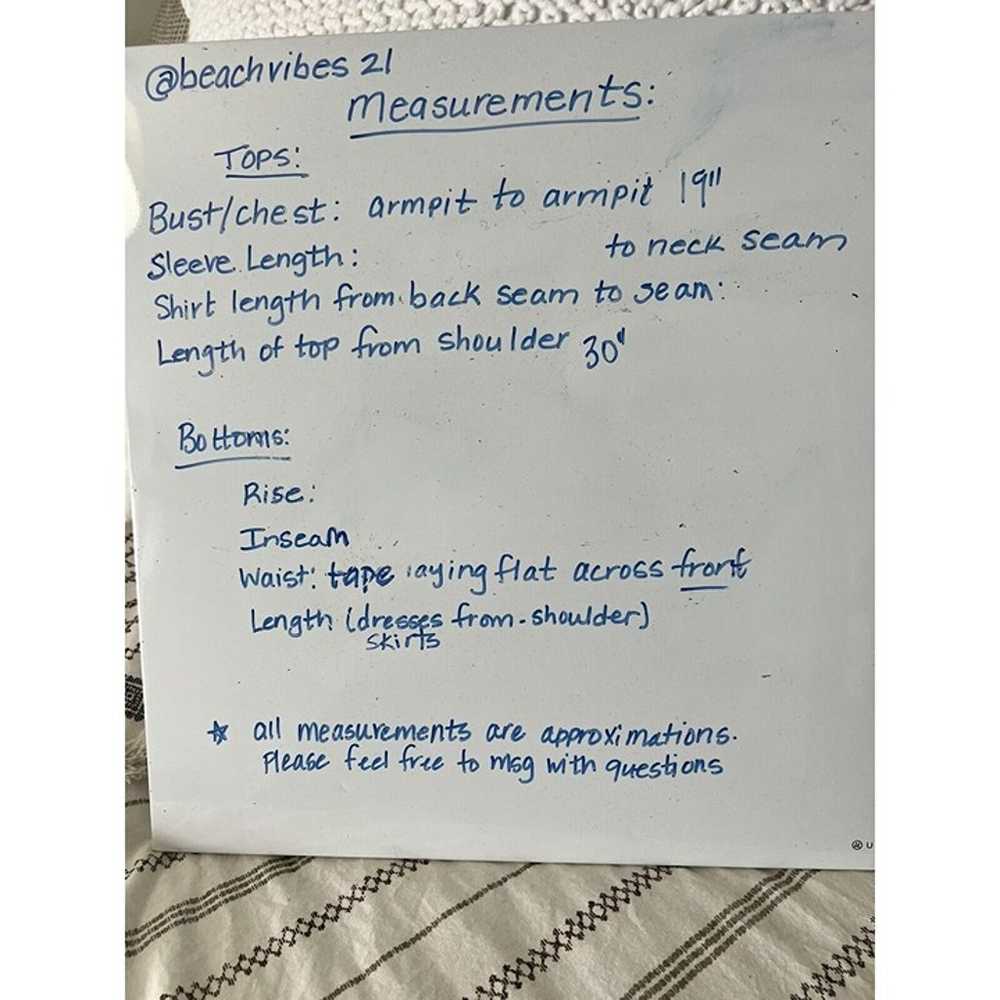 @beachvibes 21
Measurements:
TOPS:
Bust/chest: armpit to armpit 19"
Sleeve Length: to neck seam
Shirt length from back seam to seam:
Length of top from shoulder 30"
Bottoms:
Rise:
Inseam
Waist: tape laying flat across front
Length (dresses from shoulder)
skirts
☆ all measurements are approximations.
Please feel free to msg with questions
U